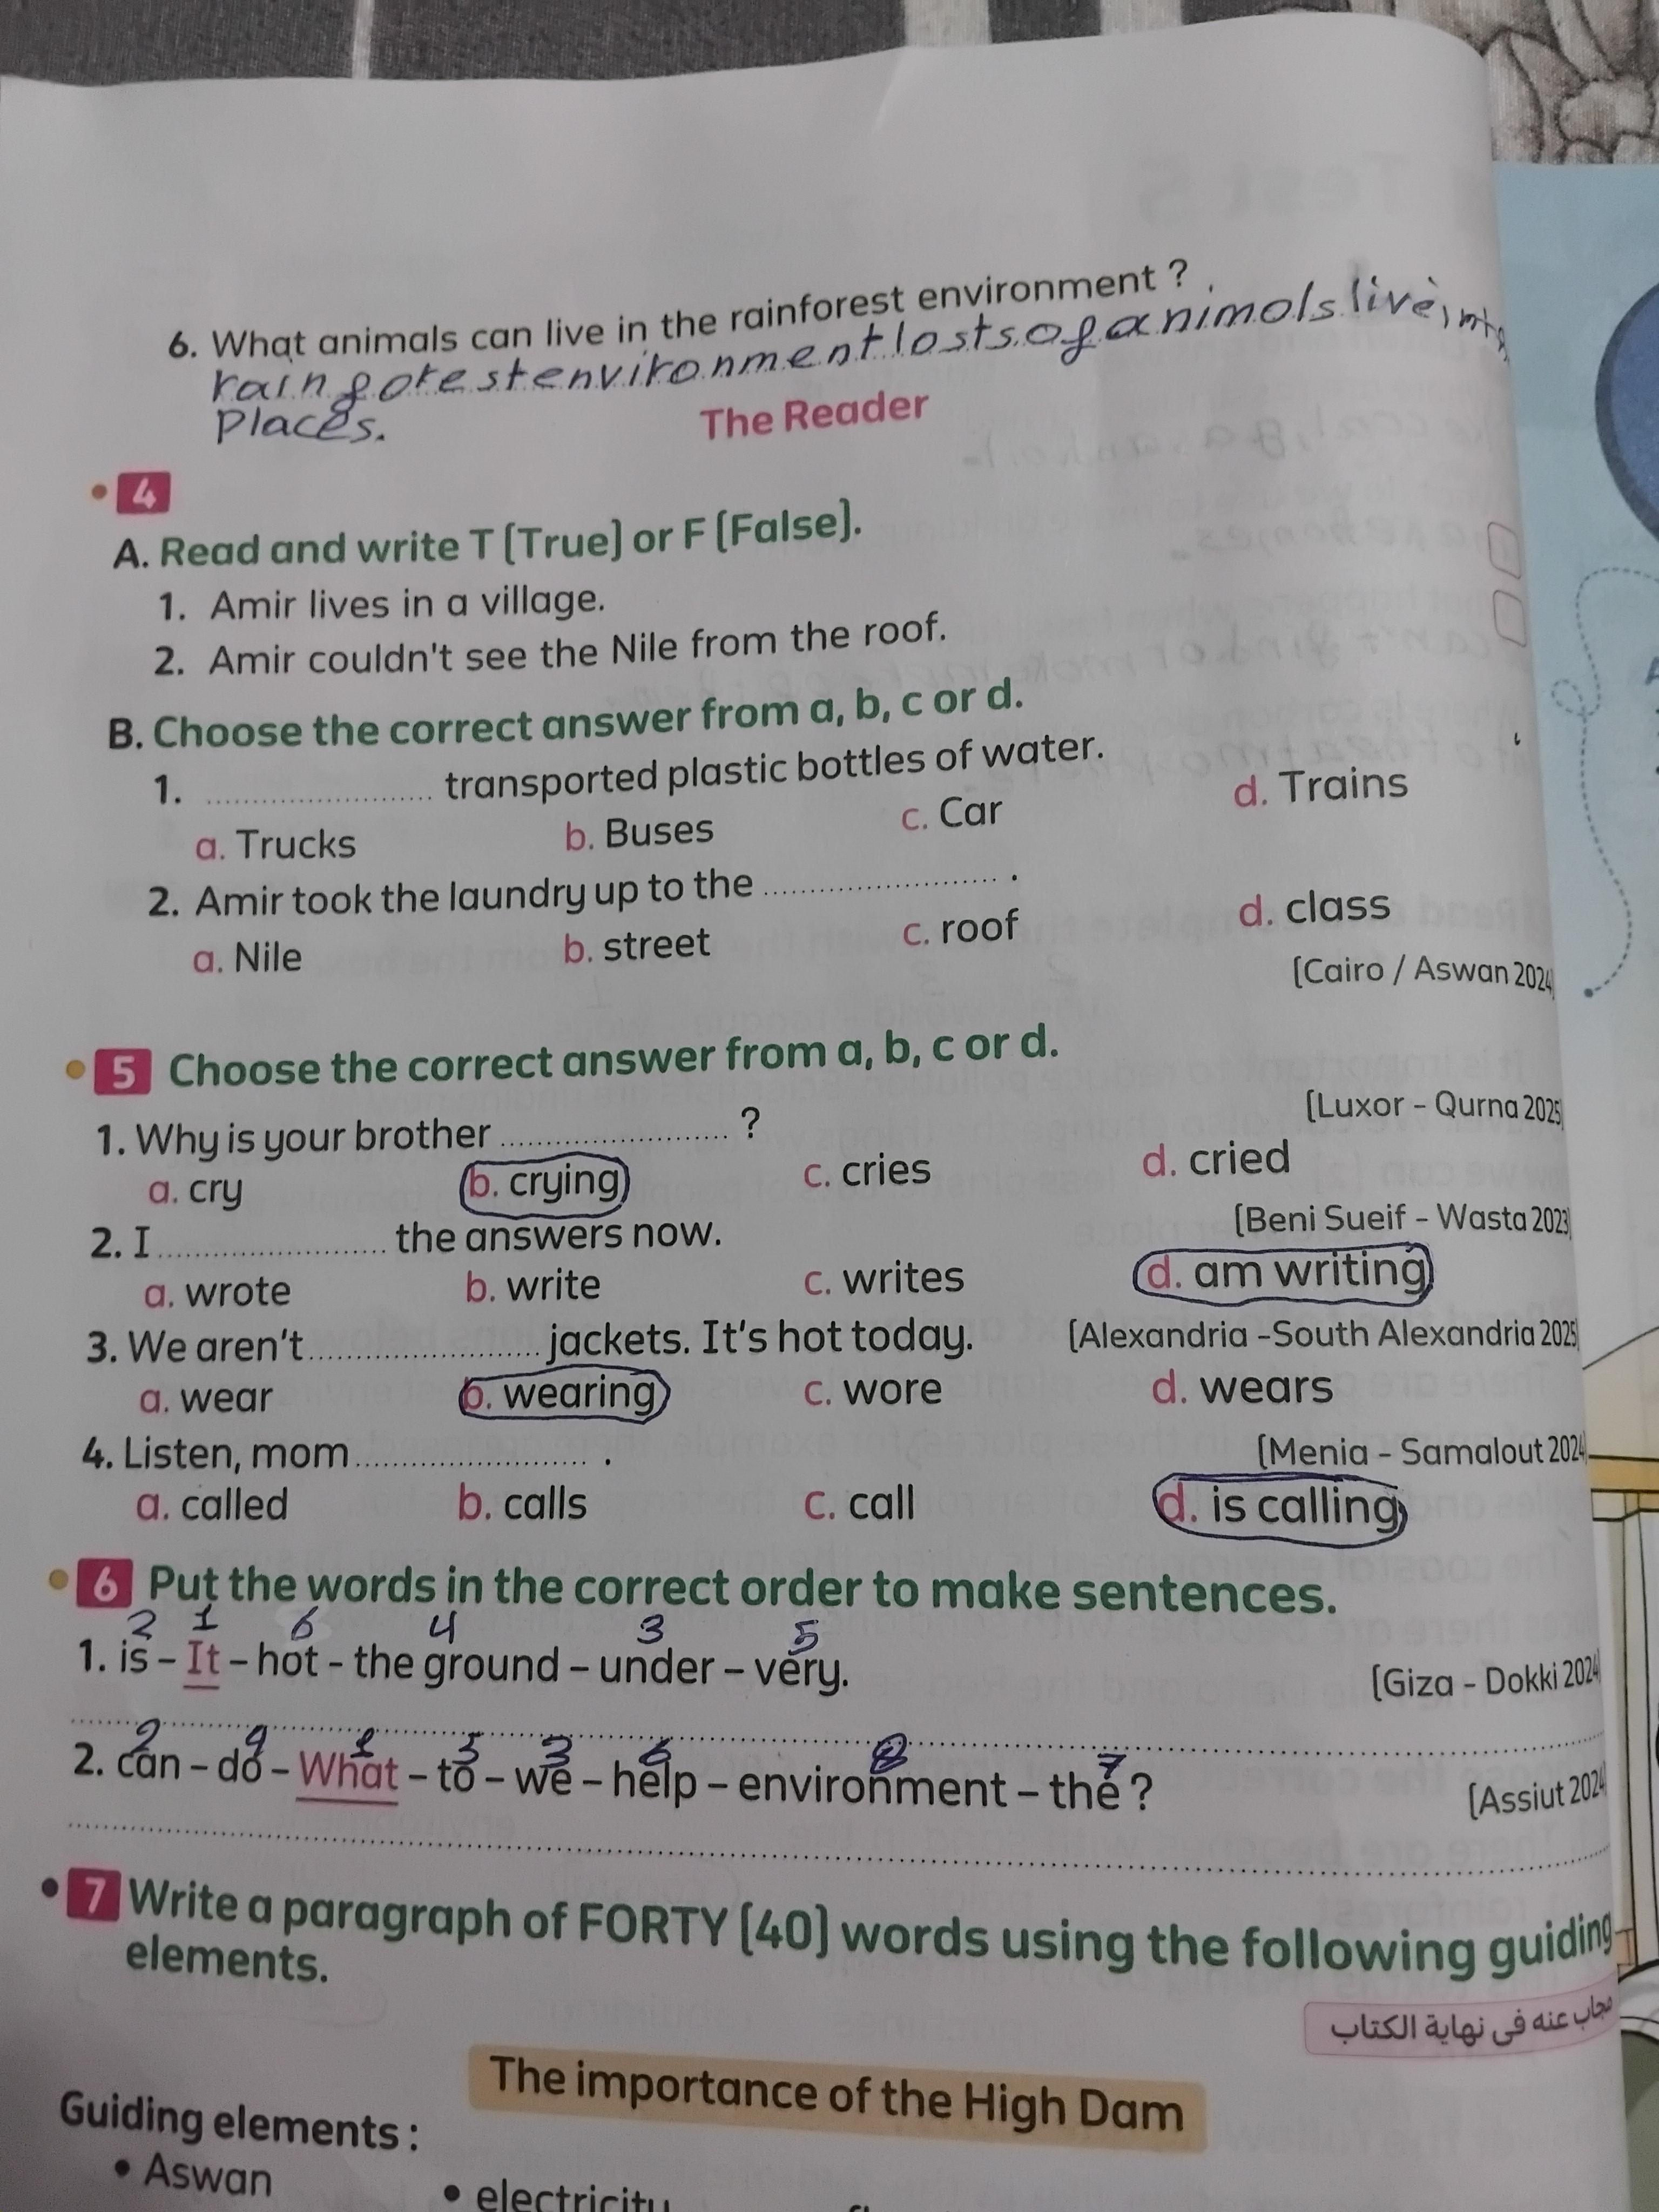 6. What animals can live in the rainforest environment ?
raingorestenvironment losts og animols live in
Places.
The Reader
4
A. Read and write T (True) or F (False).
1. Amir lives in a village.
2. Amir couldn't see the Nile from the roof.
B. Choose the correct answer from a, b, c or d.
1. ........................ transported plastic bottles of water.
a. Trucks b. Buses c. Car d. Trains
2. Amir took the laundry up to the ........................ .
a. Nile b. street c. roof d. class
(Cairo / Aswan 2024
5 Choose the correct answer from a, b, c or d.
(Luxor - Qurna 2025
1. Why is your brother ........................ ?
a. cry b. crying c. cries d. cried
(Beni Sueif - Wasta 2023
2. I ........................ the answers now.
a. wrote b. write c. writes d. am writing
3. We aren't ........................ jackets. It's hot today. (Alexandria -South Alexandria 2025
a. wear b. wearing c. wore d. wears
4. Listen, mom ........................ . (Menia - Samalout 2024
a. called b. calls c. call d. is calling
6 Put the words in the correct order to make sentences.
2 1 6 4 3 5
1. is - It - hot - the ground - under - very. (Giza - Dokki 2024
2 4 1 5 3 6 8 7
2. can - do - What - to - we - help - environment - the ? (Assiut 2024
7 Write a paragraph of FORTY (40) words using the following guiding
elements.
مجاب عنه فى نهاية الكتاب
The importance of the High Dam
Guiding elements :
• Aswan • electricity